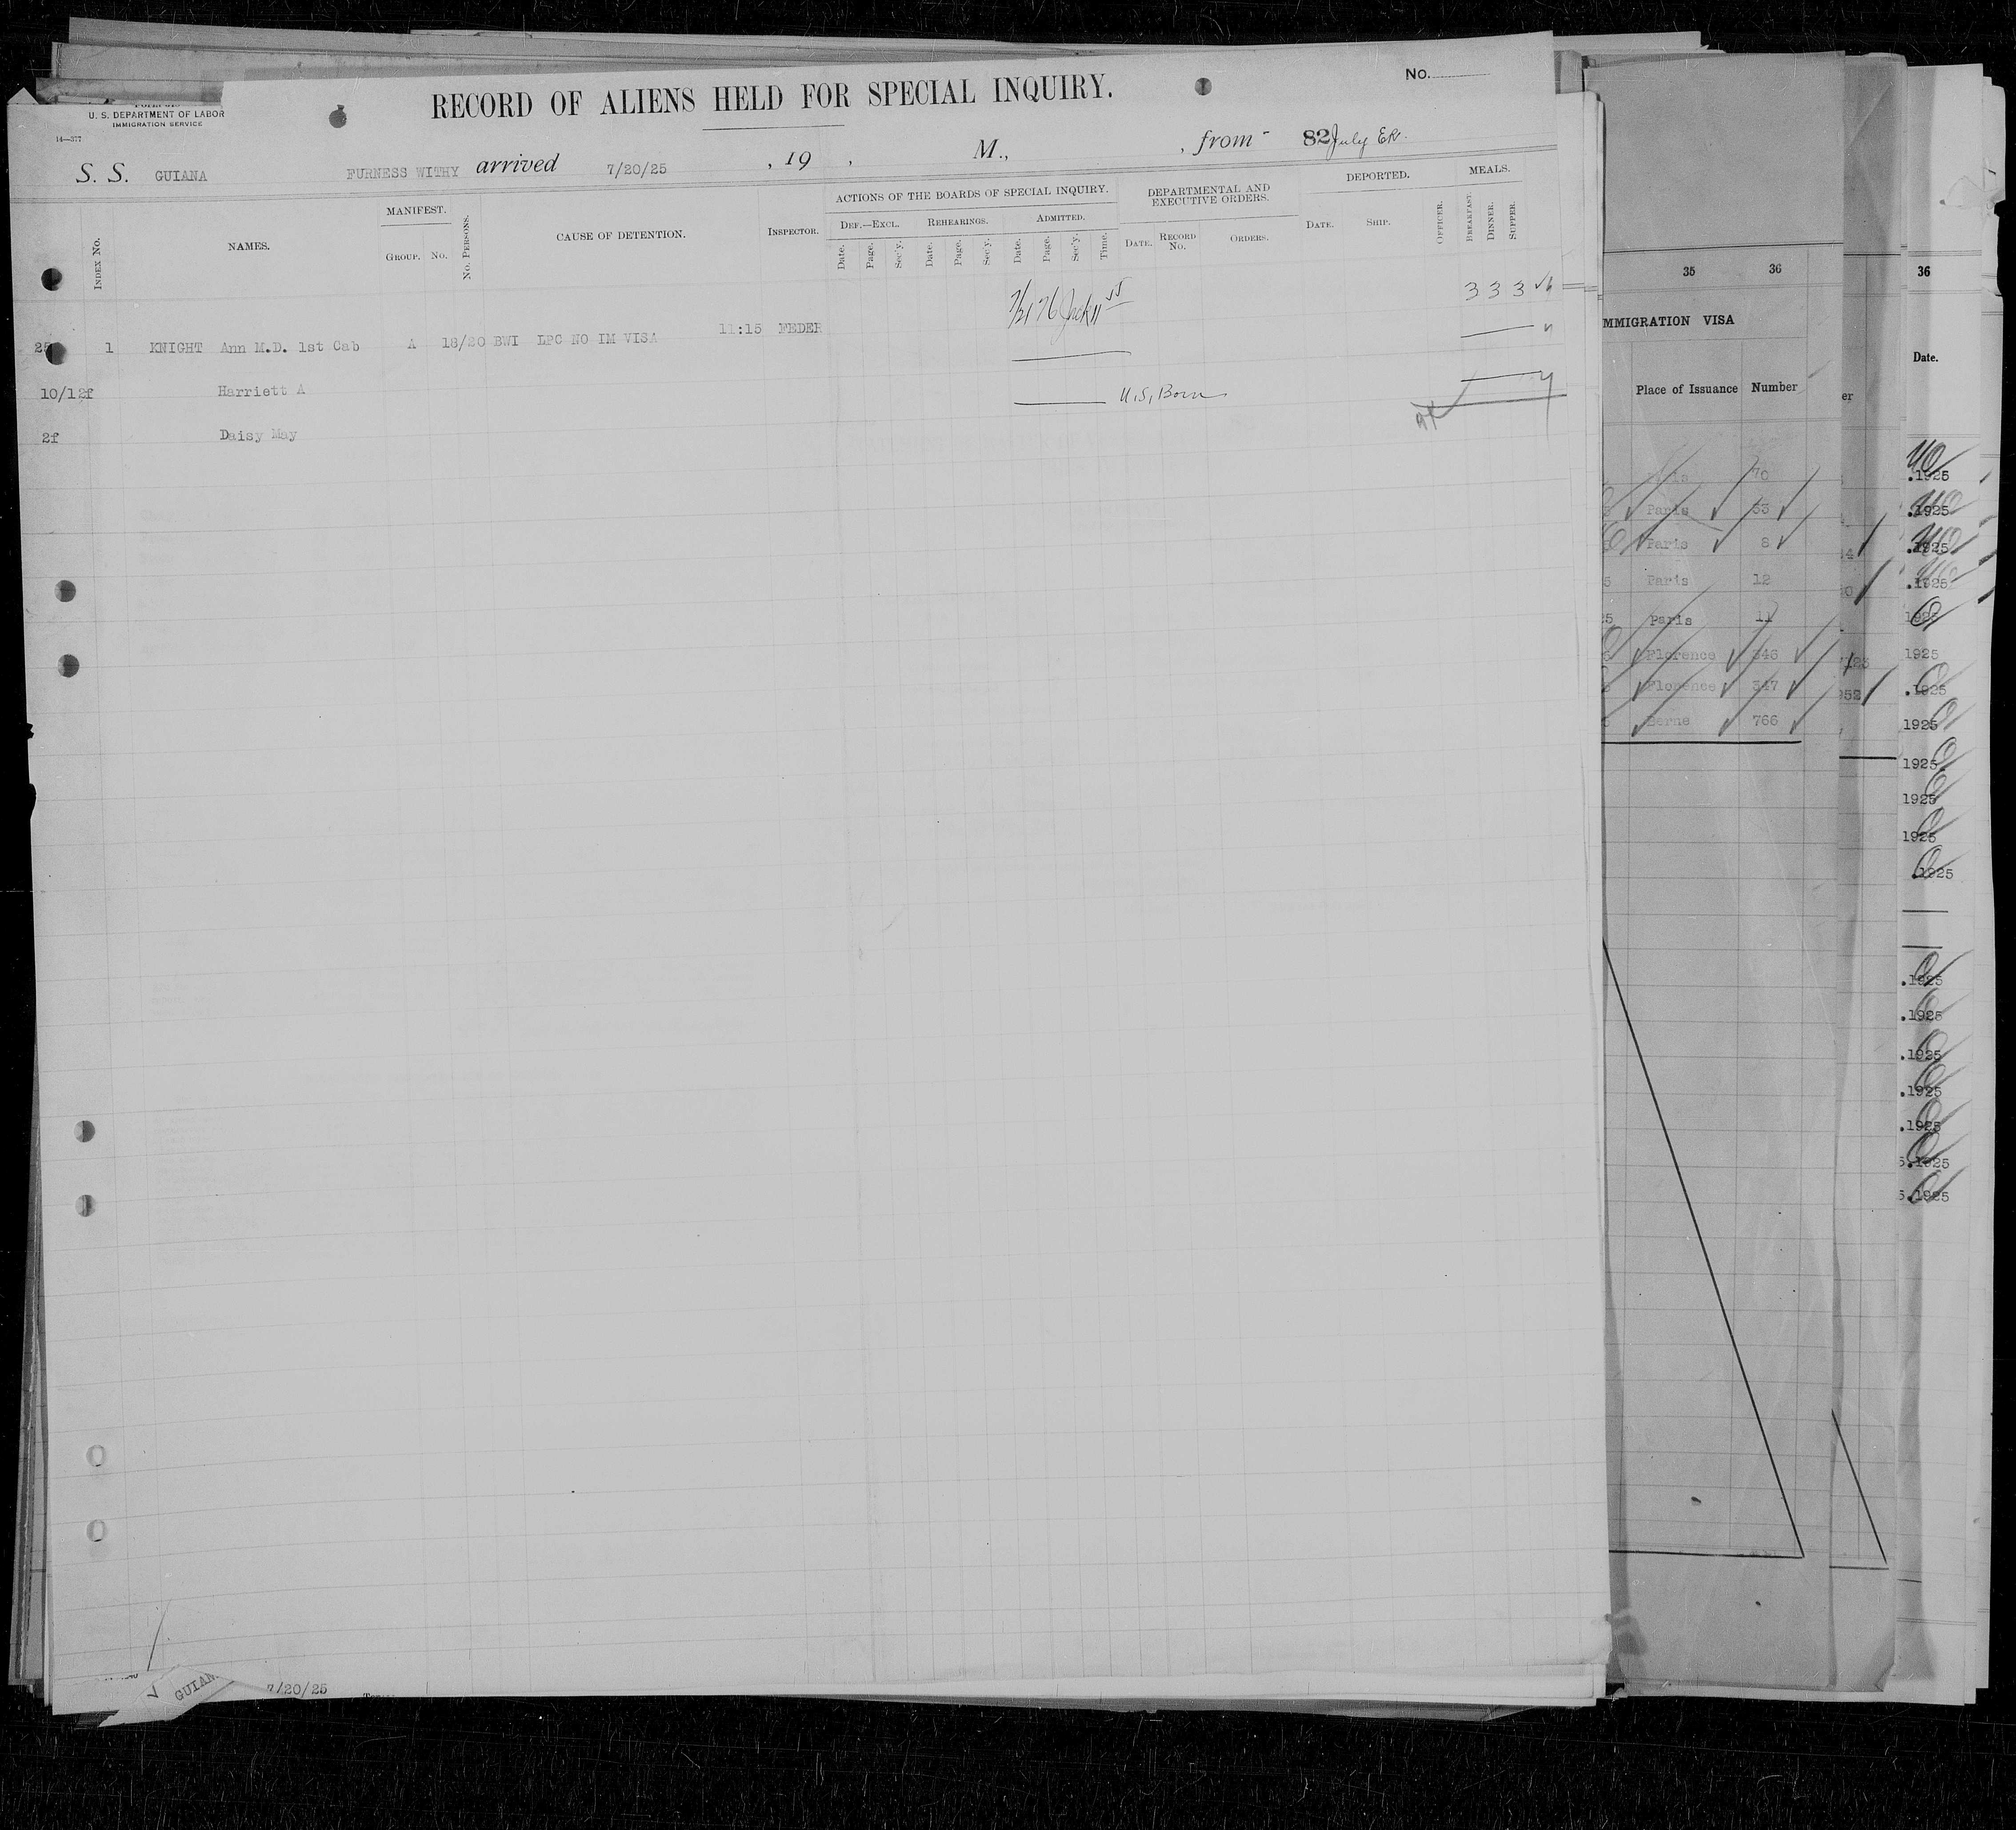 RECORD OF ALIENS HELD FOR SPECIAL INQUIRY.
No.
U. S. DEPARTMENT OF LABOR
IMMIGRATION SERVICE
14—377
S. S. GUIANA FURNESS WITHY arrived 7/20/25 , 19 , M., , from 82 July
INDEX No.
NAMES.
MANIFEST.
GROUP. No.
No. PERSONS.
CAUSE OF DETENTION.
INSPECTOR.
ACTIONS OF THE BOARDS OF SPECIAL INQUIRY.
DEF.—EXCL. REHEARINGS. ADMITTED.
Date. Page. Sec'y. Date. Page. Sec'y. Date. Page. Sec'y. Time.
DEPARTMENTAL AND
EXECUTIVE ORDERS.
DATE. RECORD No. ORDERS.
DEPORTED.
DATE. SHIP. OFFICER.
MEALS.
BREAKFAST. DINNER. SUPPER.
1 KNIGHT Ann M.D. 1st Cab A 18/20 BWI LPC NO IM VISA 11:15 FEDER 3 3 3
Harriett A U.S. Born
2f Daisy May
GUIAN
7/20/25
35 36
MMIGRATION VISA
Place of Issuance Number
70
Paris 53
Paris 8
Paris 12
Paris 11
Florence 346
Florence 347
Berne 766
er
36
Date.
.1925
.1925
.1925
.1925
1925
1925
.1925
1925
1925
1925
1925
.1925
.1925
.1925
.1925
.1925
.1925
5.1925
5.1925